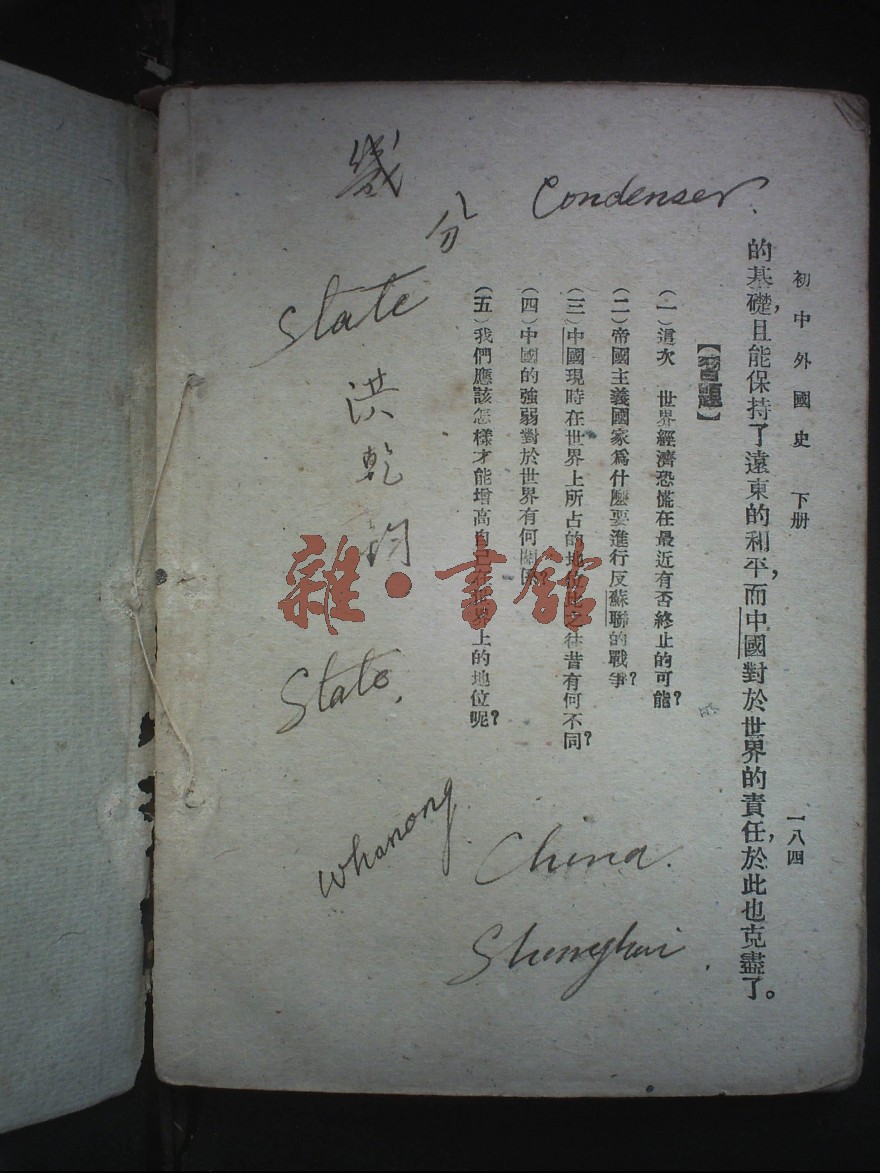 初中外國史 下册 一八四
的基礎，且能保持了遠東的和平，而中國對於世界的責任，於此也克盡了。
【習題】
（一）這次 世界經濟恐慌在最近有否終止的可能？
（二）帝國主義國家爲什麼要進行反蘇聯的戰爭？
（三）中國現時在世界上所占的地位比之往昔有何不同？
（四）中國的強弱對於世界有何關係？
（五）我們應該怎樣才能增高自己在世界上的地位呢？
Condenser.
分
State
洪乾鈞
State.
whanong
China.
Shanghai.
雜·書館